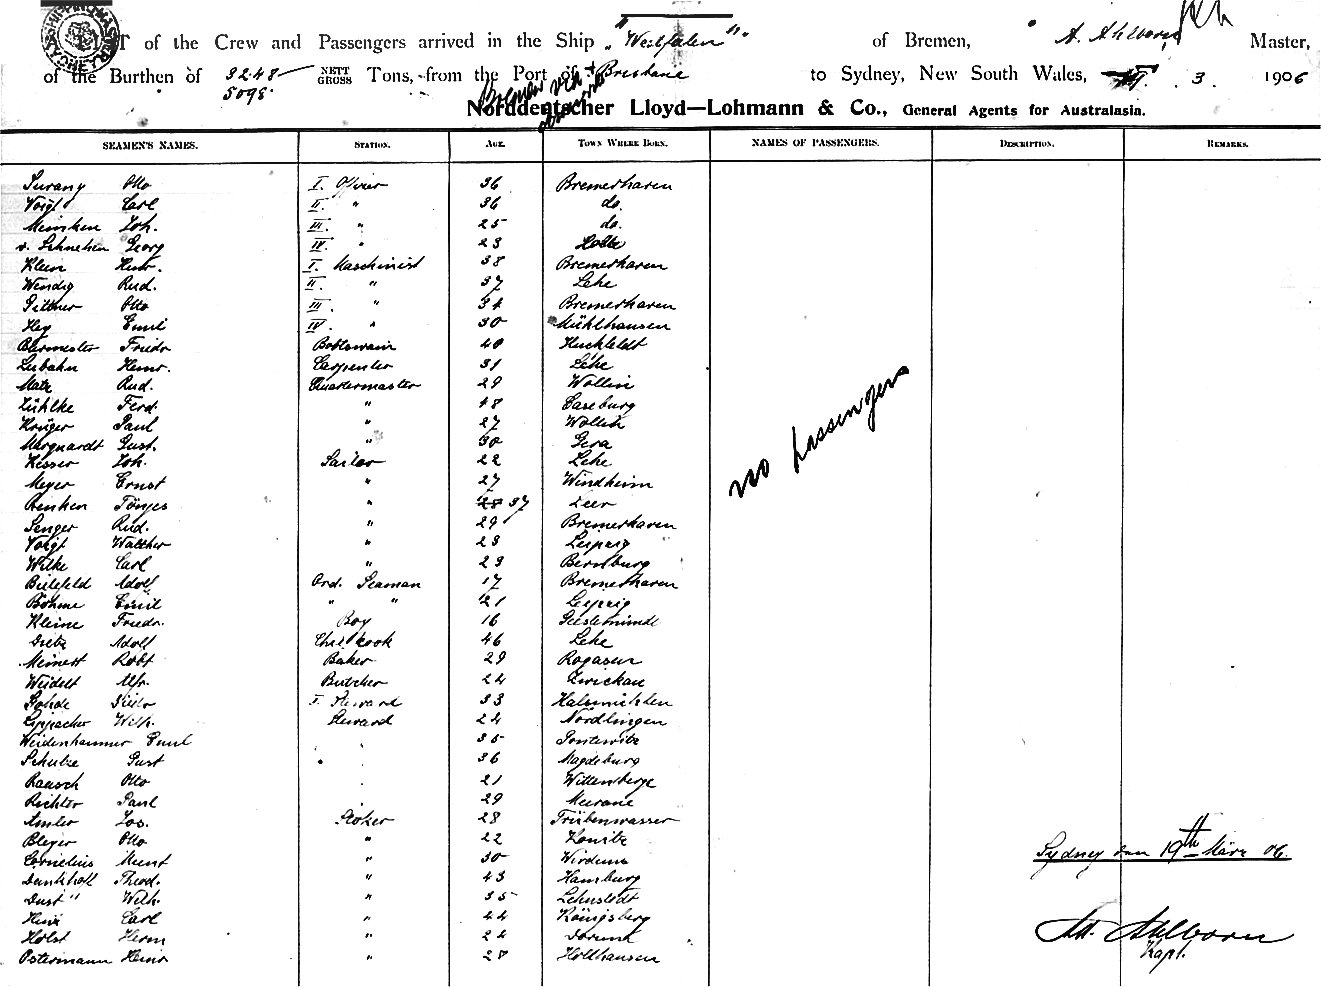 LIST of the Crew and Passengers arrived in the Ship "Westfalen" of Bremen, A. Ahlborn Master,
of the Burthen of 3248 NETT Tons, from the Port of Brisbane to Sydney, New South Wales, 3. 1906
5098 GROSS
Norddeutscher Lloyd—Lohmann & Co., General Agents for Australasia.
SEAMEN'S NAMES. STATION. AGE. TOWN WHERE BORN. NAMES OF PASSENGERS. DESCRIPTION. REMARKS.
Otto I. 36 Bremerhaven
Voigt Carl II. " 36 do.
Meinken Joh. III. " 25 do.
Georg IV. " 23
Klein Heinr. I. Maschinist 38 Bremerhaven
Wendig Rud. II. " 37 Lehe
Otto III. " 34 Bremerhaven
Hey Emil IV. " 30 Mühlhausen
Friedr Bootswain 40
Heinr. Carpenter 31 Lehe
Rud. Quartermaster 29 Wollin
Lühlke Ferd. " 48 Caseburg
Krüger Paul " 27 Wollin
Marquardt Gust. " 30 Gera
Joh. Sailor 22 Lehe
Meyer Ernst " 27 Windheim
Renken Tönjes " 37 Leer
Senger Rud. " 29 Bremerhaven
Voigt Walther " 23 Leipzig
Wilke Carl " 23 Bernburg
Bielefeld Adolf Ord. Seaman 17 Bremerhaven
Böhme Emil " " 21 Leipzig
Kleine Friedr. Boy 16 Geestemünde
Dietz Adolf Chief cook 46 Lehe
Meinert Robt Baker 29 Rogasen
Weidelt Alfr. Butcher 24 Zwickau
Rohde I. Steward 33
Wilh. Steward 24 Nördlingen
Weidenhammer Emil 35
Schulze Gust 36 Magdeburg
Rausch Otto 21 Wittenberge
Richter Paul 29 Meerane
Amler Jos. Stoker 28 Trübenwasser
Bleyer Otto " 22 Konitz
Cornelius Meint " 30 Wirdum
Theod. " 43 Hamburg
Dust Wilh. " 35 Lehnstedt
Carl " 44 Königsberg
Holst Herm " 24 Dorum
Ostermann Heinr " 28 Holthausen
no passengers
Sydney den 19th März 06.
Ad. Ahlborn
Kapt.